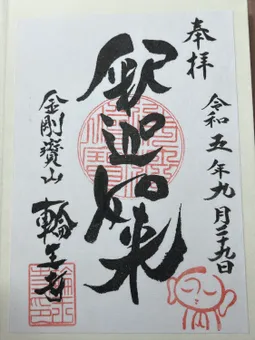 奉拝
令和五年九月二十九日
釈迦如来
金剛寶山
輪王寺